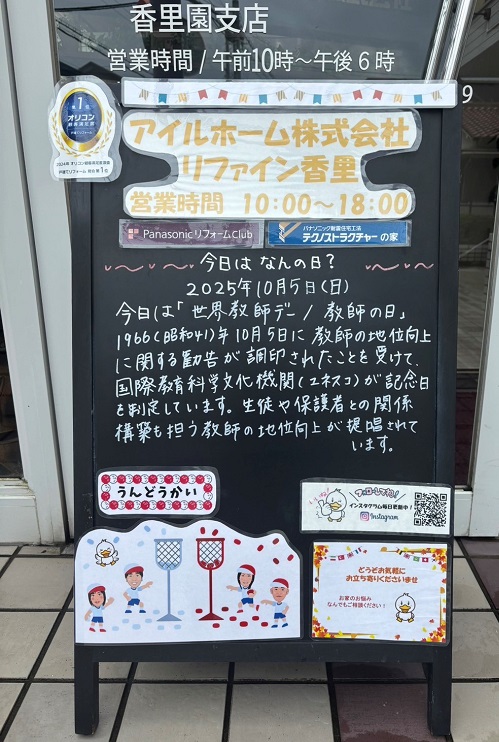 香里園支店
営業時間 / 午前10時～午後6時
9
第1位
オリコン
顧客満足度
戸建てリフォーム
2024年 オリコン顧客満足度調査
戸建てリフォーム 総合 第1位
アイルホーム株式会社
リファイン香里
営業時間 10:00～18:00
Panasonic リフォームClub
パナソニック耐震住宅工法
テクノストラクチャーの家
今日は なんの日？
2025年10月5日(日)
今日は「世界教師デー / 教師の日」
1966(昭和41)年10月5日に 教師の地位向上
に関する勧告が 調印されたことを受けて、
国際教育科学文化機関(ユネスコ)が 記念日
を制定しています。生徒や保護者との関係
構築も担う教師の地位向上が 提唱されて
います。
うんどうかい
フォローしてね！
インスタグラム毎日更新中！
Instagram
どうぞお気軽に
お立ち寄りくださいませ
お家のお悩み
なんでもご相談ください！